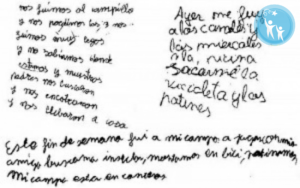 nos fuimos al campillo
y nos
fuimos muy lejos
y no sabiamos donde
estamos y nuestros
padres nos buscaron
y nos encontraron
y nos llebaron a casa
Ayer me fui
a los
los miercoles
sacarme la
vicicleta y los
patines
Este fin de semana fui a mi campo a jugar con mis
amigos buscamos insectos, montamos en bici patinamos
Mi campo esta en